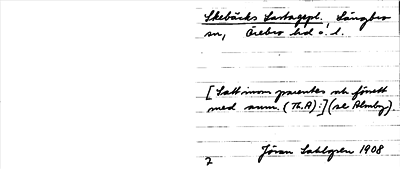 Skebäcks Lertagspl., Längbro
sn, Örebro hd ö. l.
[Satt inom parentes och försett
med anm. (Th.A):] (se Almby).
Jöran Sahlgren 1908
7